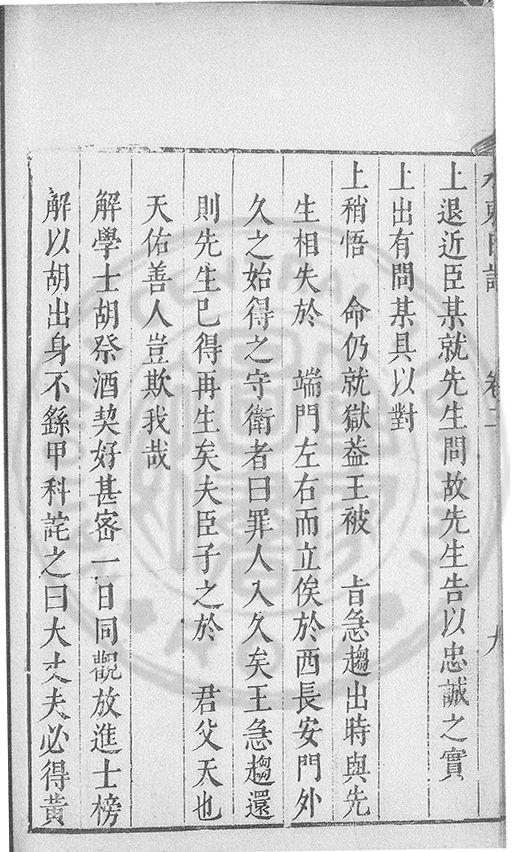 水東日記 卷二 九
上退近臣某就先生問故先生告以忠誠之實
上出有問某具以對
上稍悟 命仍就獄葢王被 旨急趨出時與先
生相失於 端門左右而立俟於西長安門外
久之始得之守衛者曰罪人入久矣王急趨還
則先生已得再生矣夫臣子之於 君父天也
天佑善人豈欺我哉
解學士胡祭酒契好甚密一日同觀放進士榜
解以胡出身不繇甲科詫之曰大丈夫必得黃